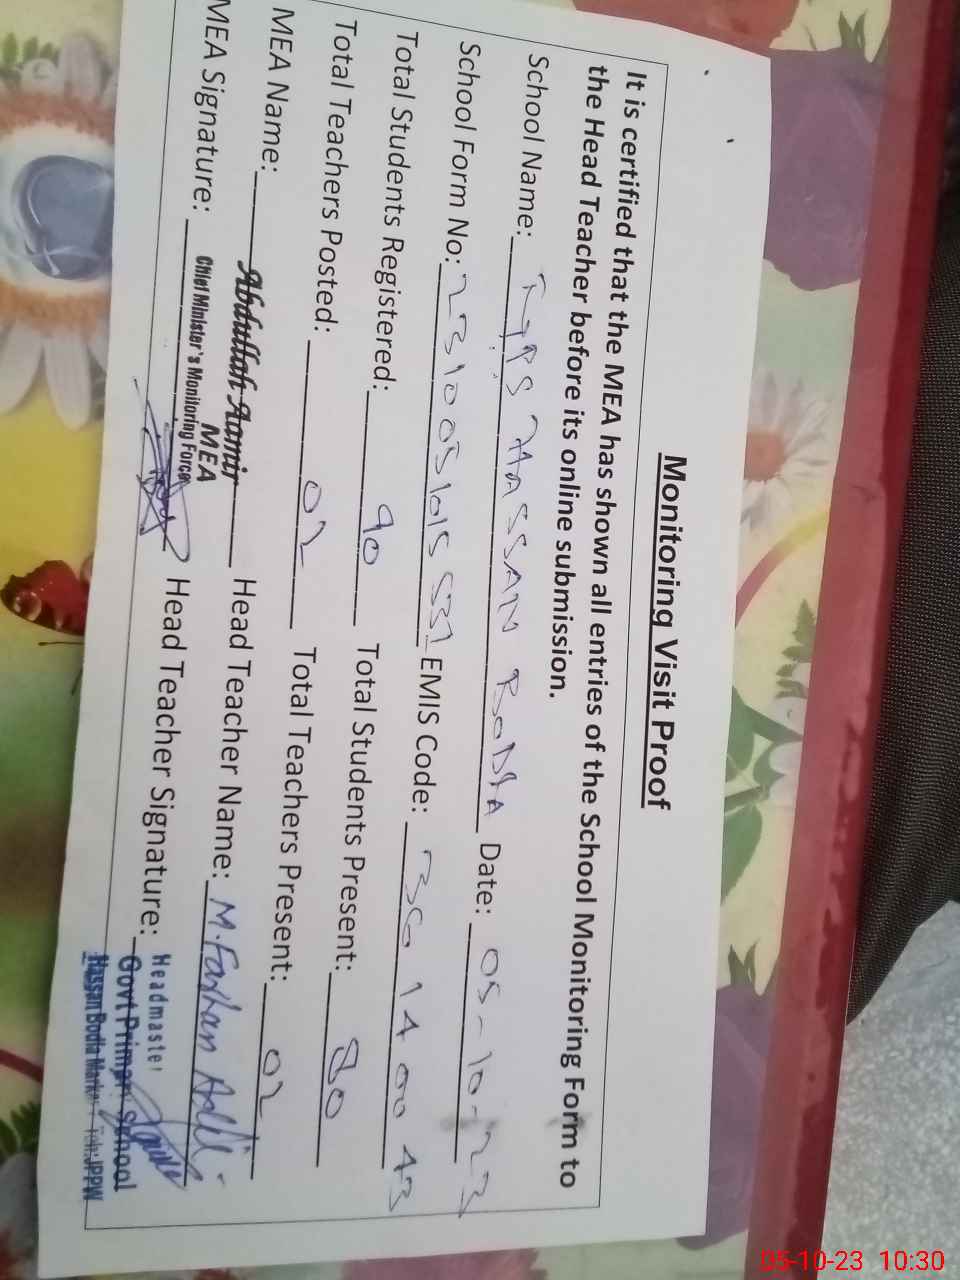 Monitoring Visit Proof
It is certified that the MEA has shown all entries of the School Monitoring Form to
the Head Teacher before its online submission.
School Name: HASSAN BODLA Date: 05-10-23
School Form No: EMIS Code:
Total Students Registered: 90 Total Students Present: 80
Total Teachers Posted: 02 Total Teachers Present: 02
MEA Name: Abdullah Aamir Head Teacher Name: M. Farhan Adil
MEA
Chief Minister's Monitoring Force
MEA Signature: Head Teacher Signature:
Headmaster
Govt Primary School
Hassan Bodla
05-10-23 10:30